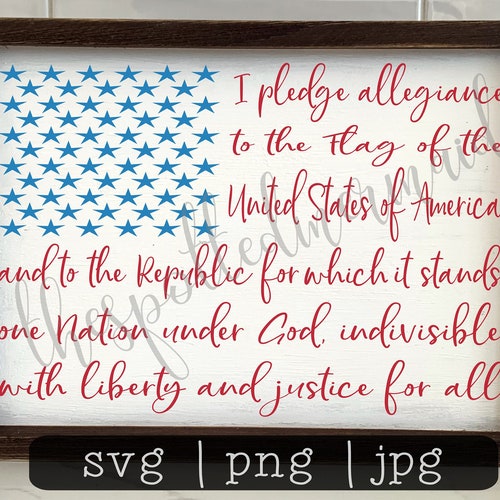 I pledge allegiance
to the Flag of the
United States of America
and to the Republic for which it stands
one Nation under God, indivisible
with liberty and justice for all
thespottedmermaid
svg | png | jpg